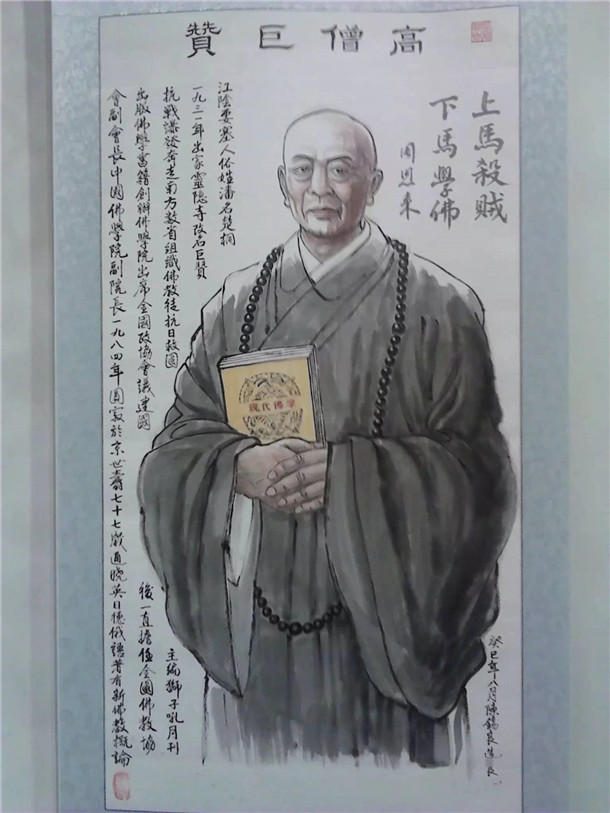 高僧巨贊
上馬殺賊
下馬學佛
周恩来
江陰要塞人俗姓潘名楚桐
一九三一年出家靈隐寺名巨贊
抗戰發奔走南方數省組織佛教徒抗日救國
主編獅子吼月刊
出版佛學書籍創辦佛學院出席全國政協會議建國
後一直擔任全國佛教協
會副會長中國佛學院副院長一九八四年圓寂於京世壽七十七歲通曉英日德俄語著有新佛教概論
現代佛學
癸巳年八月陳錫良造